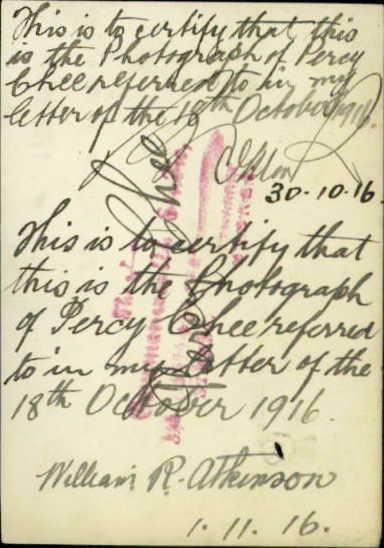 This is to certify that this
is the Photograph of Percy
Chee referred to in my
letter of the 18th October 1916.
30-10-16.
This is to certify that
this is the Photograph
of Percy Chee referred
to in my letter of the
18th October 1916.
William R. Atkinson
1.11.16.
Percy Chee